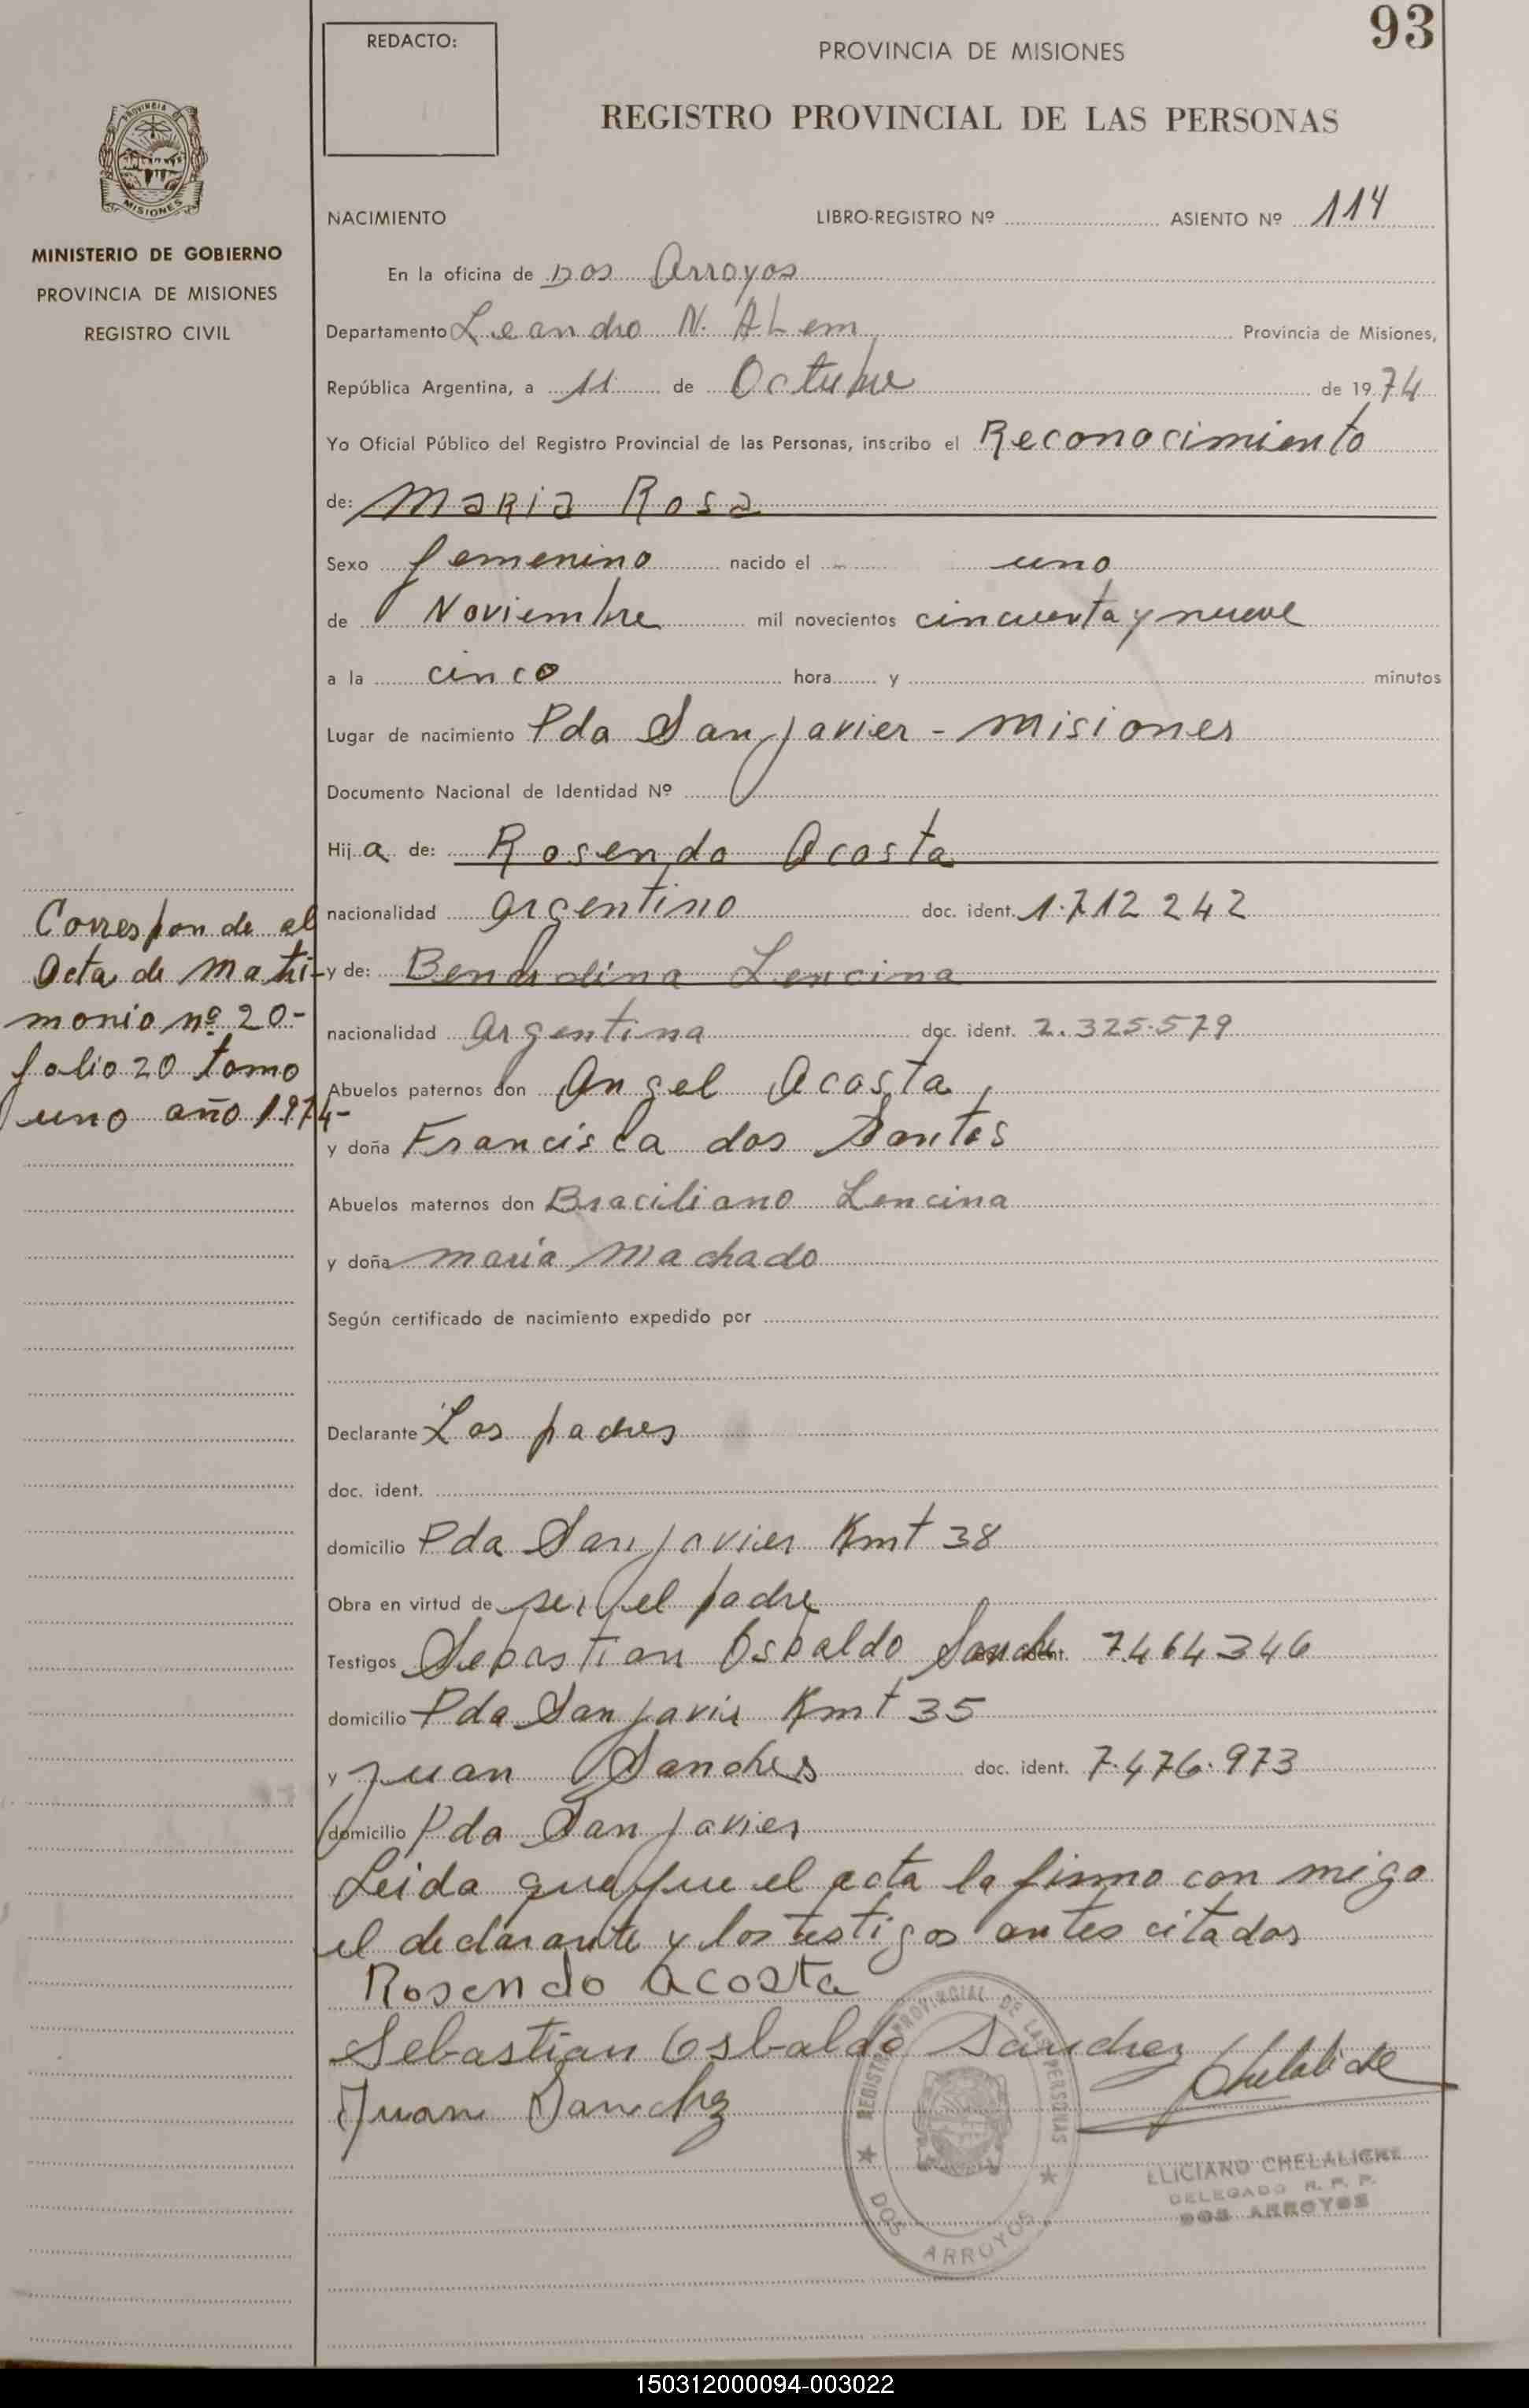 93
REDACTO:
PROVINCIA DE MISIONES
REGISTRO PROVINCIAL DE LAS PERSONAS
PROVINCIA
MISIONES
MINISTERIO DE GOBIERNO
PROVINCIA DE MISIONES
REGISTRO CIVIL
NACIMIENTO LIBRO-REGISTRO Nº ASIENTO Nº 114
En la oficina de Dos Arroyos
Departamento Leandro N. ALem Provincia de Misiones,
República Argentina, a 11 de Octubre de 1974
Yo Oficial Público del Registro Provincial de las Personas, inscribo el Reconocimiento
de: Maria Rosa
Sexo femenino nacido el uno
de Noviembre mil novecientos cincuenta y nueve
a la cinco hora y minutos
Lugar de nacimiento Pda San Javier - Misiones
Documento Nacional de Identidad Nº
Hija de: Rosendo Acosta
nacionalidad argentino doc. ident. 1.712 242
y de: Lencina
nacionalidad argentina doc. ident. 2.325.579
Abuelos paternos don Angel Acosta
y doña Francisca dos Santos
Abuelos maternos don Braciliano Lencina
y doña maria Machado
Según certificado de nacimiento expedido por
Declarante Los padres
doc. ident.
domicilio Pda San Javier Kmt 38
Obra en virtud de ser el padre
Testigos Sebastian Osbaldo Sanche ident. 7464346
domicilio Pda San Javier Kmt 35
y Juan Sanches doc. ident. 7.476.973
domicilio Pda San Javier
Leida que fue el acta la firmo con migo
el declarante y los testigos antes citados
Rosendo acosta
Sebastian Osbaldo Sanchez
Juan Sanchez
Corresponde al
Acta de Matri-
monio nº 20-
folio 20 tomo
uno año 1974-
REGISTRO PROVINCIAL DE LAS PERSONAS
DOS ARROYOS
CHELALICHE
DELEGADO R. P. P.
DOS ARROYOS
150312000094-003022